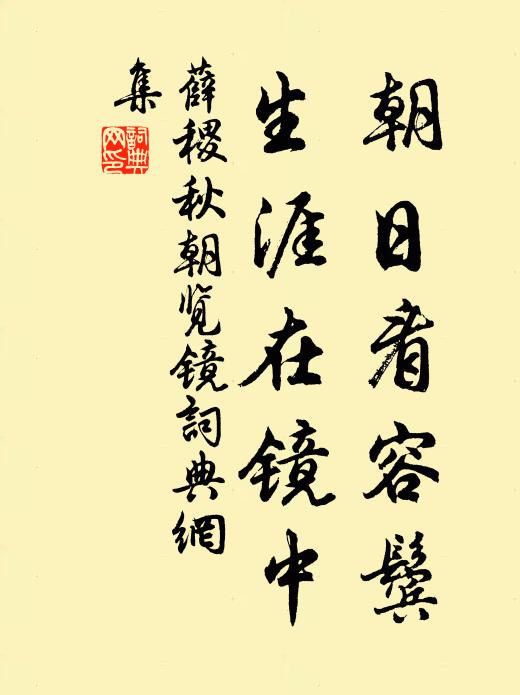 朝日看容鬓
生涯在镜中
薛稷秋朝览镜詞典網
集
詞典
网印